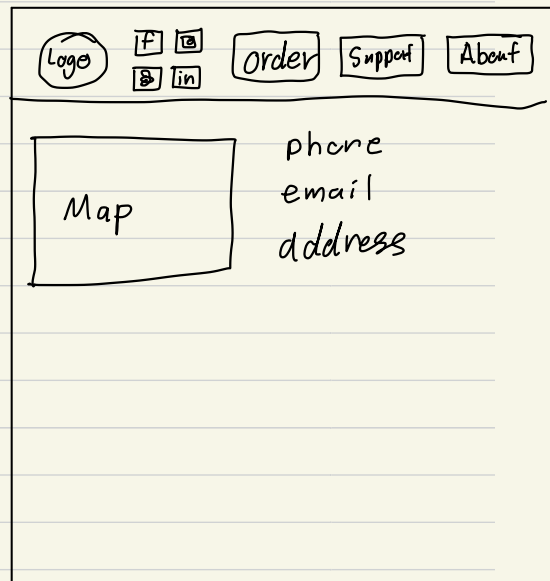 Logo
f
in
order
Support
About
Map
phone
email
address